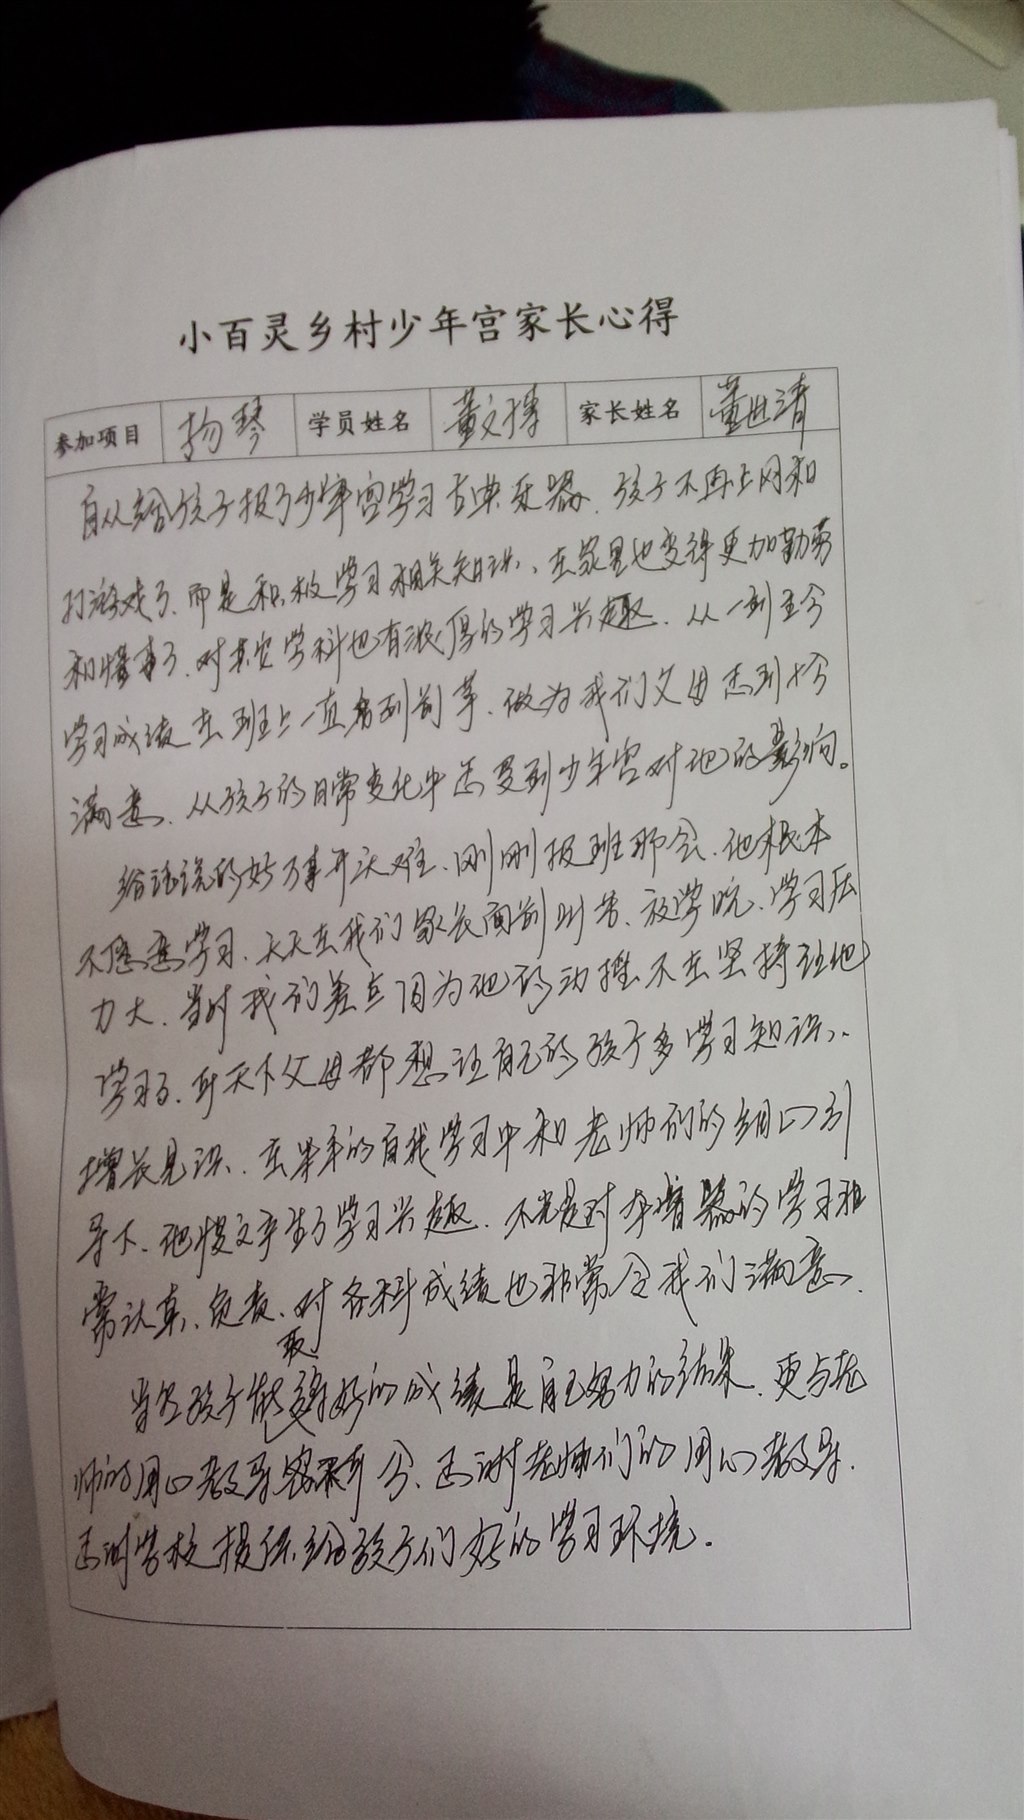 小百灵乡村少年宫家长心得
参加项目 扬琴 学员姓名 董文博 家长姓名 董世清
自从给孩子报了少年宫学习古典乐器、孩子不再上网和
打游戏了、而是积极学习相关知识、在家里也变得更加勤劳
和懂事了、对其它学科也有浓厚的学习兴趣、从一到至今
学习成绩在班上一直名列前茅、做为我们父母感到十分
满意、从孩子的日常变化中感受到少年宫对他的影响。
俗话说的好万事开头难、刚刚报班那会、他根本
不愿意学习、天天在我们家长面前叫苦、放学晚、学习压
力大、当时我们差点因为他的动摇不在坚持让他
学习了、可天下父母都想让自己的孩子多学习知识、
增长见识、在半年的自我学习中和老师们的细心引
导下、他慢慢产生了学习兴趣、不光是对 器的学习非
常认真、负责、对各科成绩也非常令我们满意、
当然孩子能取得好的成绩是自己努力的结果、更与老
师的用心教导密不可分、感谢老师们的用心教导、
感谢学校提供给孩子们好的学习环境。